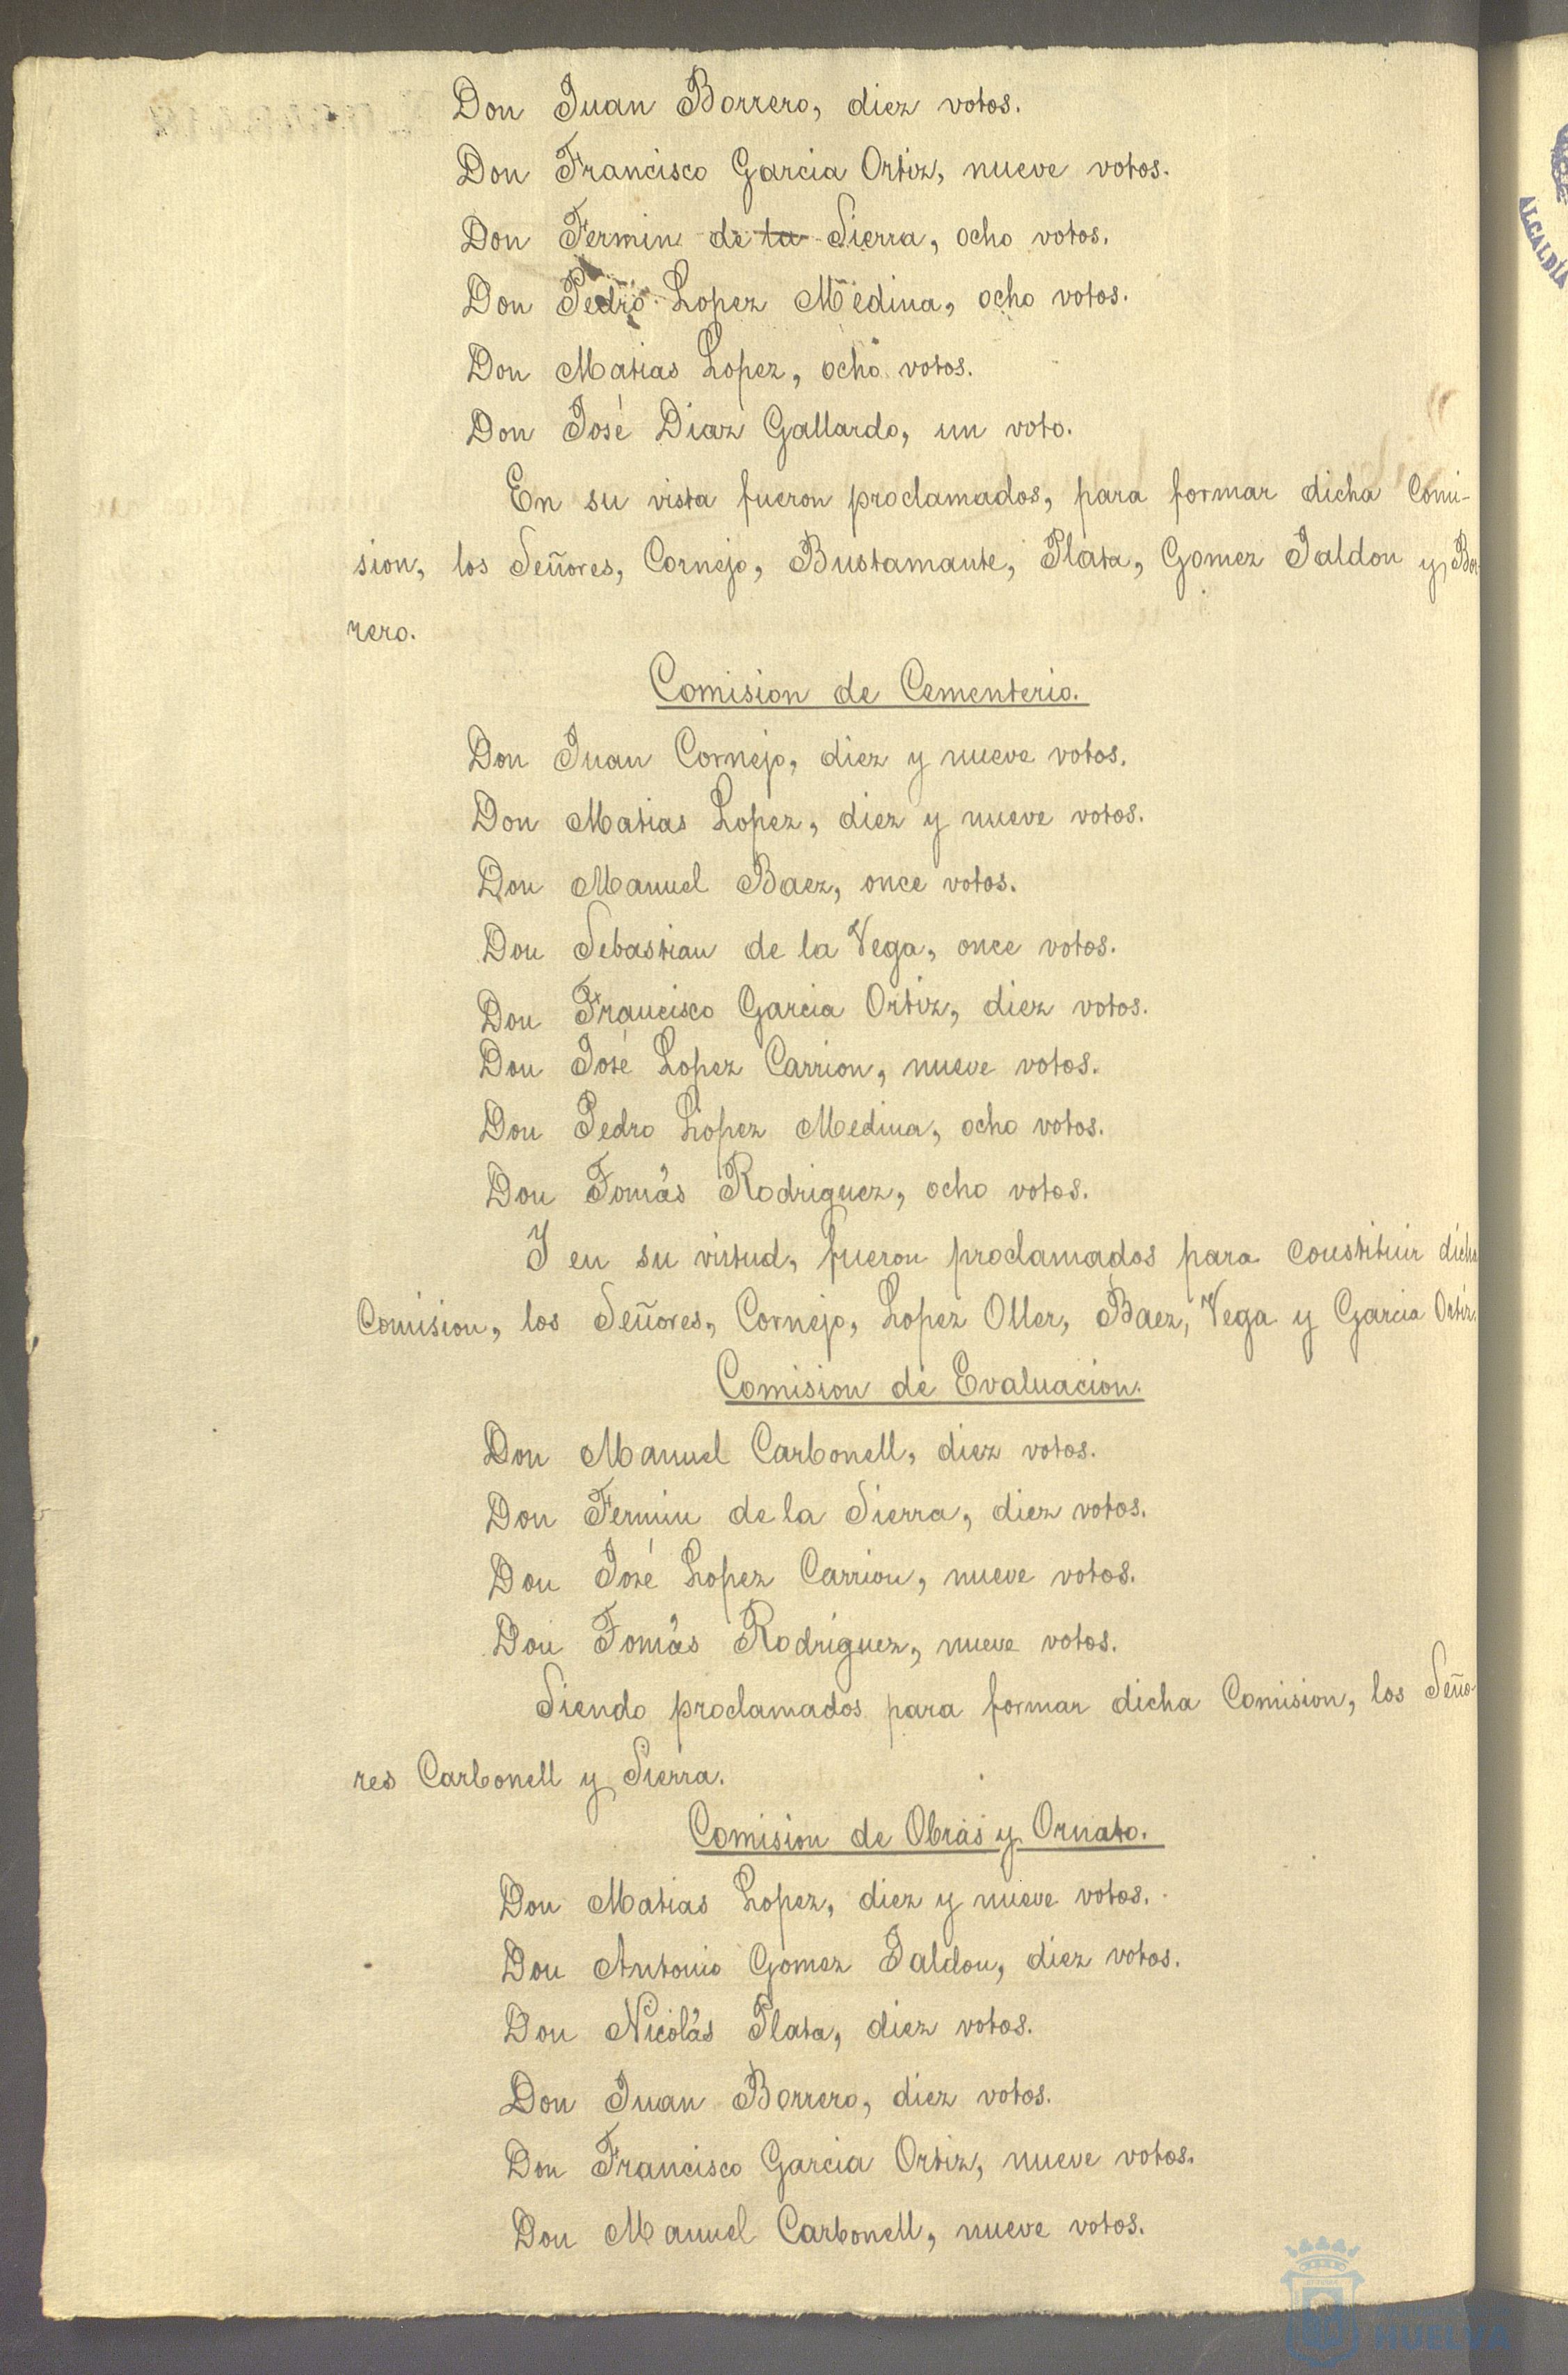 Don Juan Borrero, diez votos.
Don Francisco Garcia Ortiz, nueve votos.
Don Fermin de la Sierra, ocho votos.
Don Pedro Lopez Medina, ocho votos.
Don Matias Lopez, ocho votos.
Don José Diaz Gallardo, un voto.
En su vista fueron proclamados, para formar dicha Comi-
sion, los Señores, Cornejo, Bustamante, Plata, Gomez Jaldon y Bor
rero.
Comision de Cementerio.
Don Juan Cornejo, diez y nueve votos.
Don Matias Lopez, diez y nueve votos.
Don Manuel Baez, once votos.
Don Sebastian de la Vega, once votos.
Don Francisco Garcia Ortiz, diez votos.
Don José Lopez Carrion, nueve votos.
Don Pedro Lopez Medina, ocho votos.
Don Tomás Rodriguez, ocho votos.
Y en su virtud, fueron proclamados para constituir dicha
Comision, los Señores, Cornejo, Lopez Oller, Baez, Vega y Garcia Ortiz.
Comision de Evaluacion.
Don Manuel Carbonell, diez votos.
Don Fermin de la Sierra, diez votos.
Don José Lopez Carrion, nueve votos.
Don Tomás Rodriguez, nueve votos.
Siendo proclamados para formar dicha Comision, los Seño
res Carbonell y Sierra.
Comision de Obras y Ornato.
Don Matias Lopez, diez y nueve votos.
Don Antonio Gomez Jaldon, diez votos.
Don Nicolás Plata, diez votos.
Don Juan Borrero, diez votos.
Don Francisco Garcia Ortiz, nueve votos.
Don Manuel Carbonell, nueve votos.
ALCALDÍA
HUELVA